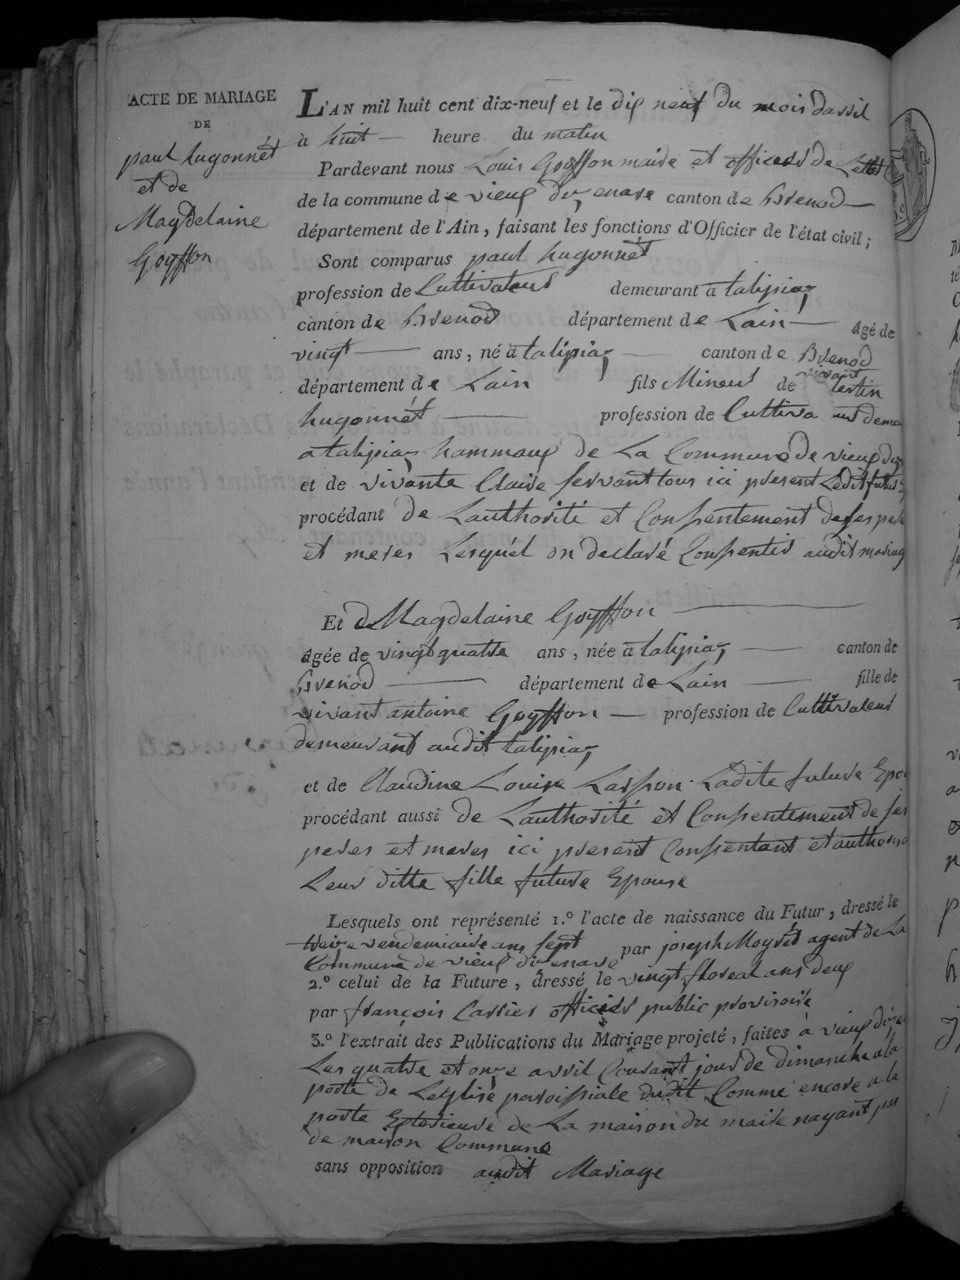 ACTE DE MARIAGE
DE
paul hugonnét
et de
Magdelaine
Goyffon
L'AN mil huit cent dix-neuf et le dix neuf du mois davril
à huit heure du matin
Pardevant nous Louis Goyffon maire et officier de Létat
de la commune de vieux dizenave canton de Brenod
département de l'Ain, faisant les fonctions d'Officier de l'état civil;
Sont comparus paul hugonnét
profession de Cultivateur demeurant à talipiaz
canton de Brenod département de Lain agé de
vingt ans, né à talipiaz canton de Brenod
département de Lain fils Mineur de vivant
hugonnét profession de Cultiva eur deme
a talipiaz hammaux de La Commune de vieux
et de vivante Claire Servant tous ici present Ledit futur
procédant de Lauthorité et Consentement de ses pere
et meres Lesquel on declaré Consentir audit mariag
Et de Magdelaine Goyffon
agée de vingt quatre ans, née à talipiaz canton de
Brenod département de Lain fille de
vivant antoine Goyffon profession de Cultivateur
demeurant audit talipiaz
et de Claudine Louise Ladite future Epou
procédant aussi de Lauthorité et Consentement de ses
peres et meres ici present Consentant et authorisa
Leur ditte fille future Epouse
Lesquels ont représenté 1.º l'acte de naissance du Futur, dressé le
treize vendemiaire ans sept par joseph Moyrét agent de La
Commune de vieux dizenave
2.º celui de la Future, dressé le vingt floreal ans deux
par françois Carrier officier public provisoire
3.º l'extrait des Publications du Mariage projeté, faites à vieux dize
Les quatre et onze avril Courant jours de dimanche a la
porte de Leglise paroissiale dudit Comme encore a la
porte Exterieure de La maison du maire nayant pas
de maison Commune
sans opposition audit Mariage